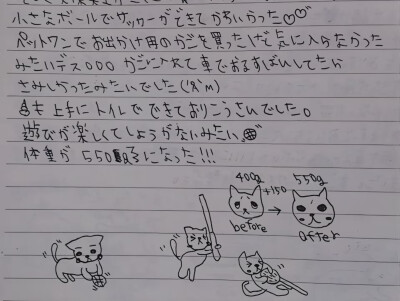 小さなボールでサッカーができてかわいかった♡♡
ペットワンでお出かけ用のかごを買ったけど気に入らなかった
みたいデス○○○ かごに入れて車でおるすばんしてたら
さみしかったみたいでした
も上手にトイレでできておりこうさんでした。
遊びが楽しくてしょうがないみたい。
体重が550gになった!!!
400g +150 → 550g
before after